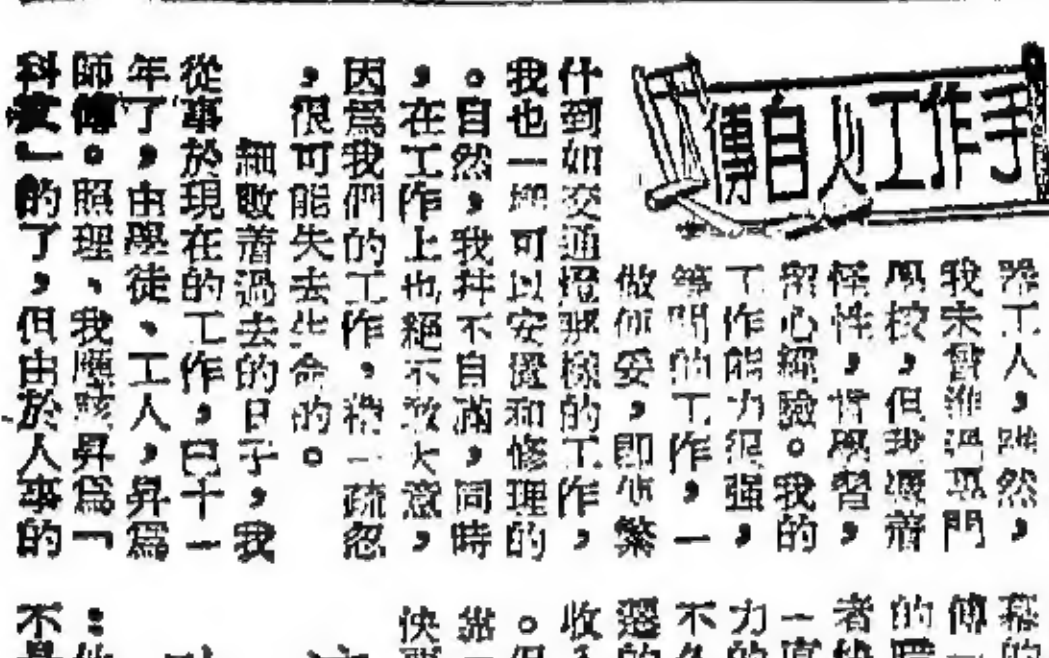 手作工火自傳
器工人，雖然，
我未曾進過專門
學校，但我憑着
悟性，肯學習，
留心經驗。我的
工作能力很强，
等閒的工作，一
做便妥，即便繁
什到如交通燈那樣的工作，
我也一樣可以安置和修理的
。自然，我幷不自滿，同時
，在工作上也絕不敢大意，
因爲我們的工作，稍一疏忽
，很可能失去生命的。
細數着過去的日子，我
從事於現在的工作，已十一
年了，由學徒、工人，昇爲
師傅。照理、我應該昇爲「
科文」的了，但由於人事的
幕的
傅一
的
者
一直
力的
不
還的
收入
。但
快
：他
不是